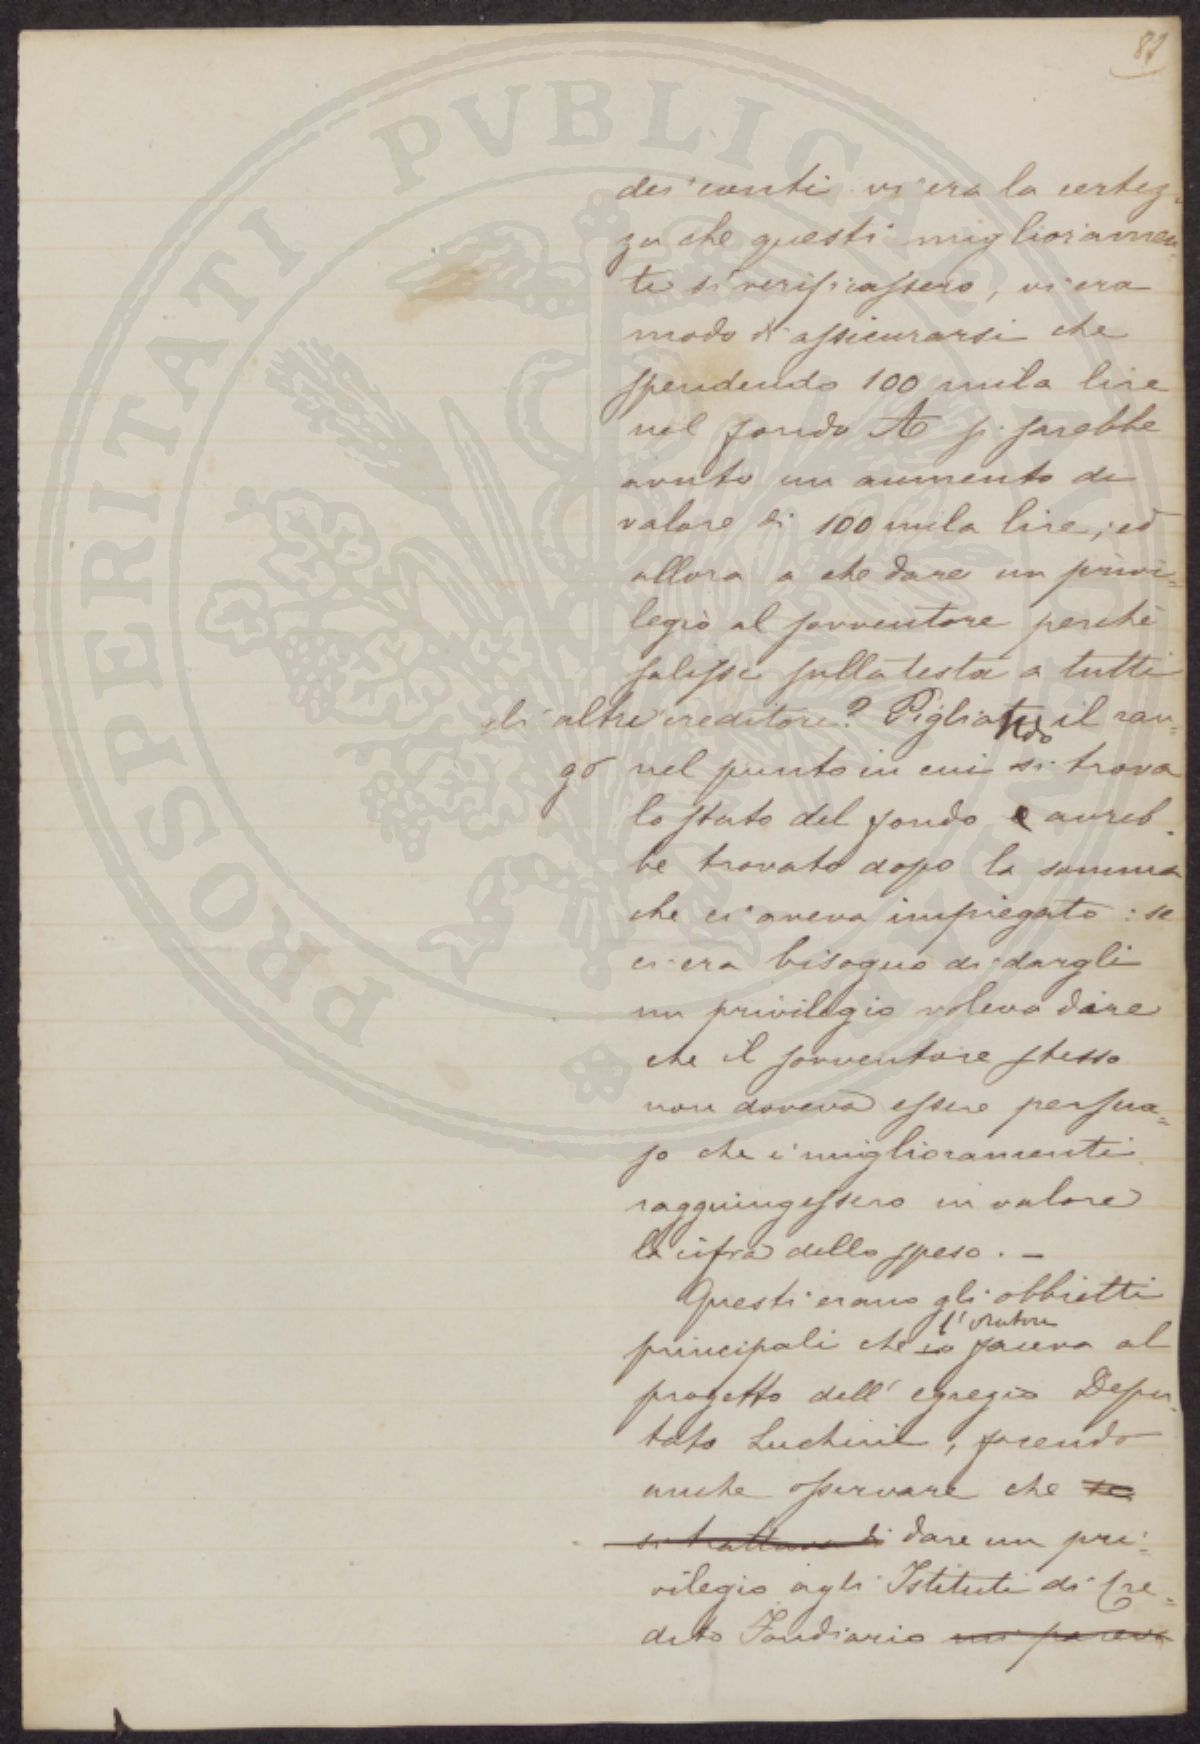 82
dei conti vi era la certez-
za che questi miglioramen-
ti si verificassero, vi era
modo di assicurarsi che
spendendo 100 mila lire
nel fondo A si sarebbe
avuto un aumento di
valore di 100 mila lire; ed
allora a che dare un privi=
legio al sovventore perchè
salisse sulla testa a tutti
gli altri creditori? Pigliando il ran=
go nel punto in cui si trova
lo stato del fondo e avreb-
be trovato dopo la somma
che ci aveva impiegato: se
ci era bisogno di dargli
un privilegio voleva dire
che il sovventore stesso
non doveva essere persua=
so che i miglioramenti
raggiungessero in valore
la cifra dello speso. -
Questi erano gli obbietti
l'oratore
principali che io faceva al
progetto dell'egregio Depu-
tato Luchini, facendo
anche osservare che se
si trattava di dare un pri=
vilegio agli Istituti di Cre=
dito Fondiario mi pareva
PROSPERITATI PVBLICAE